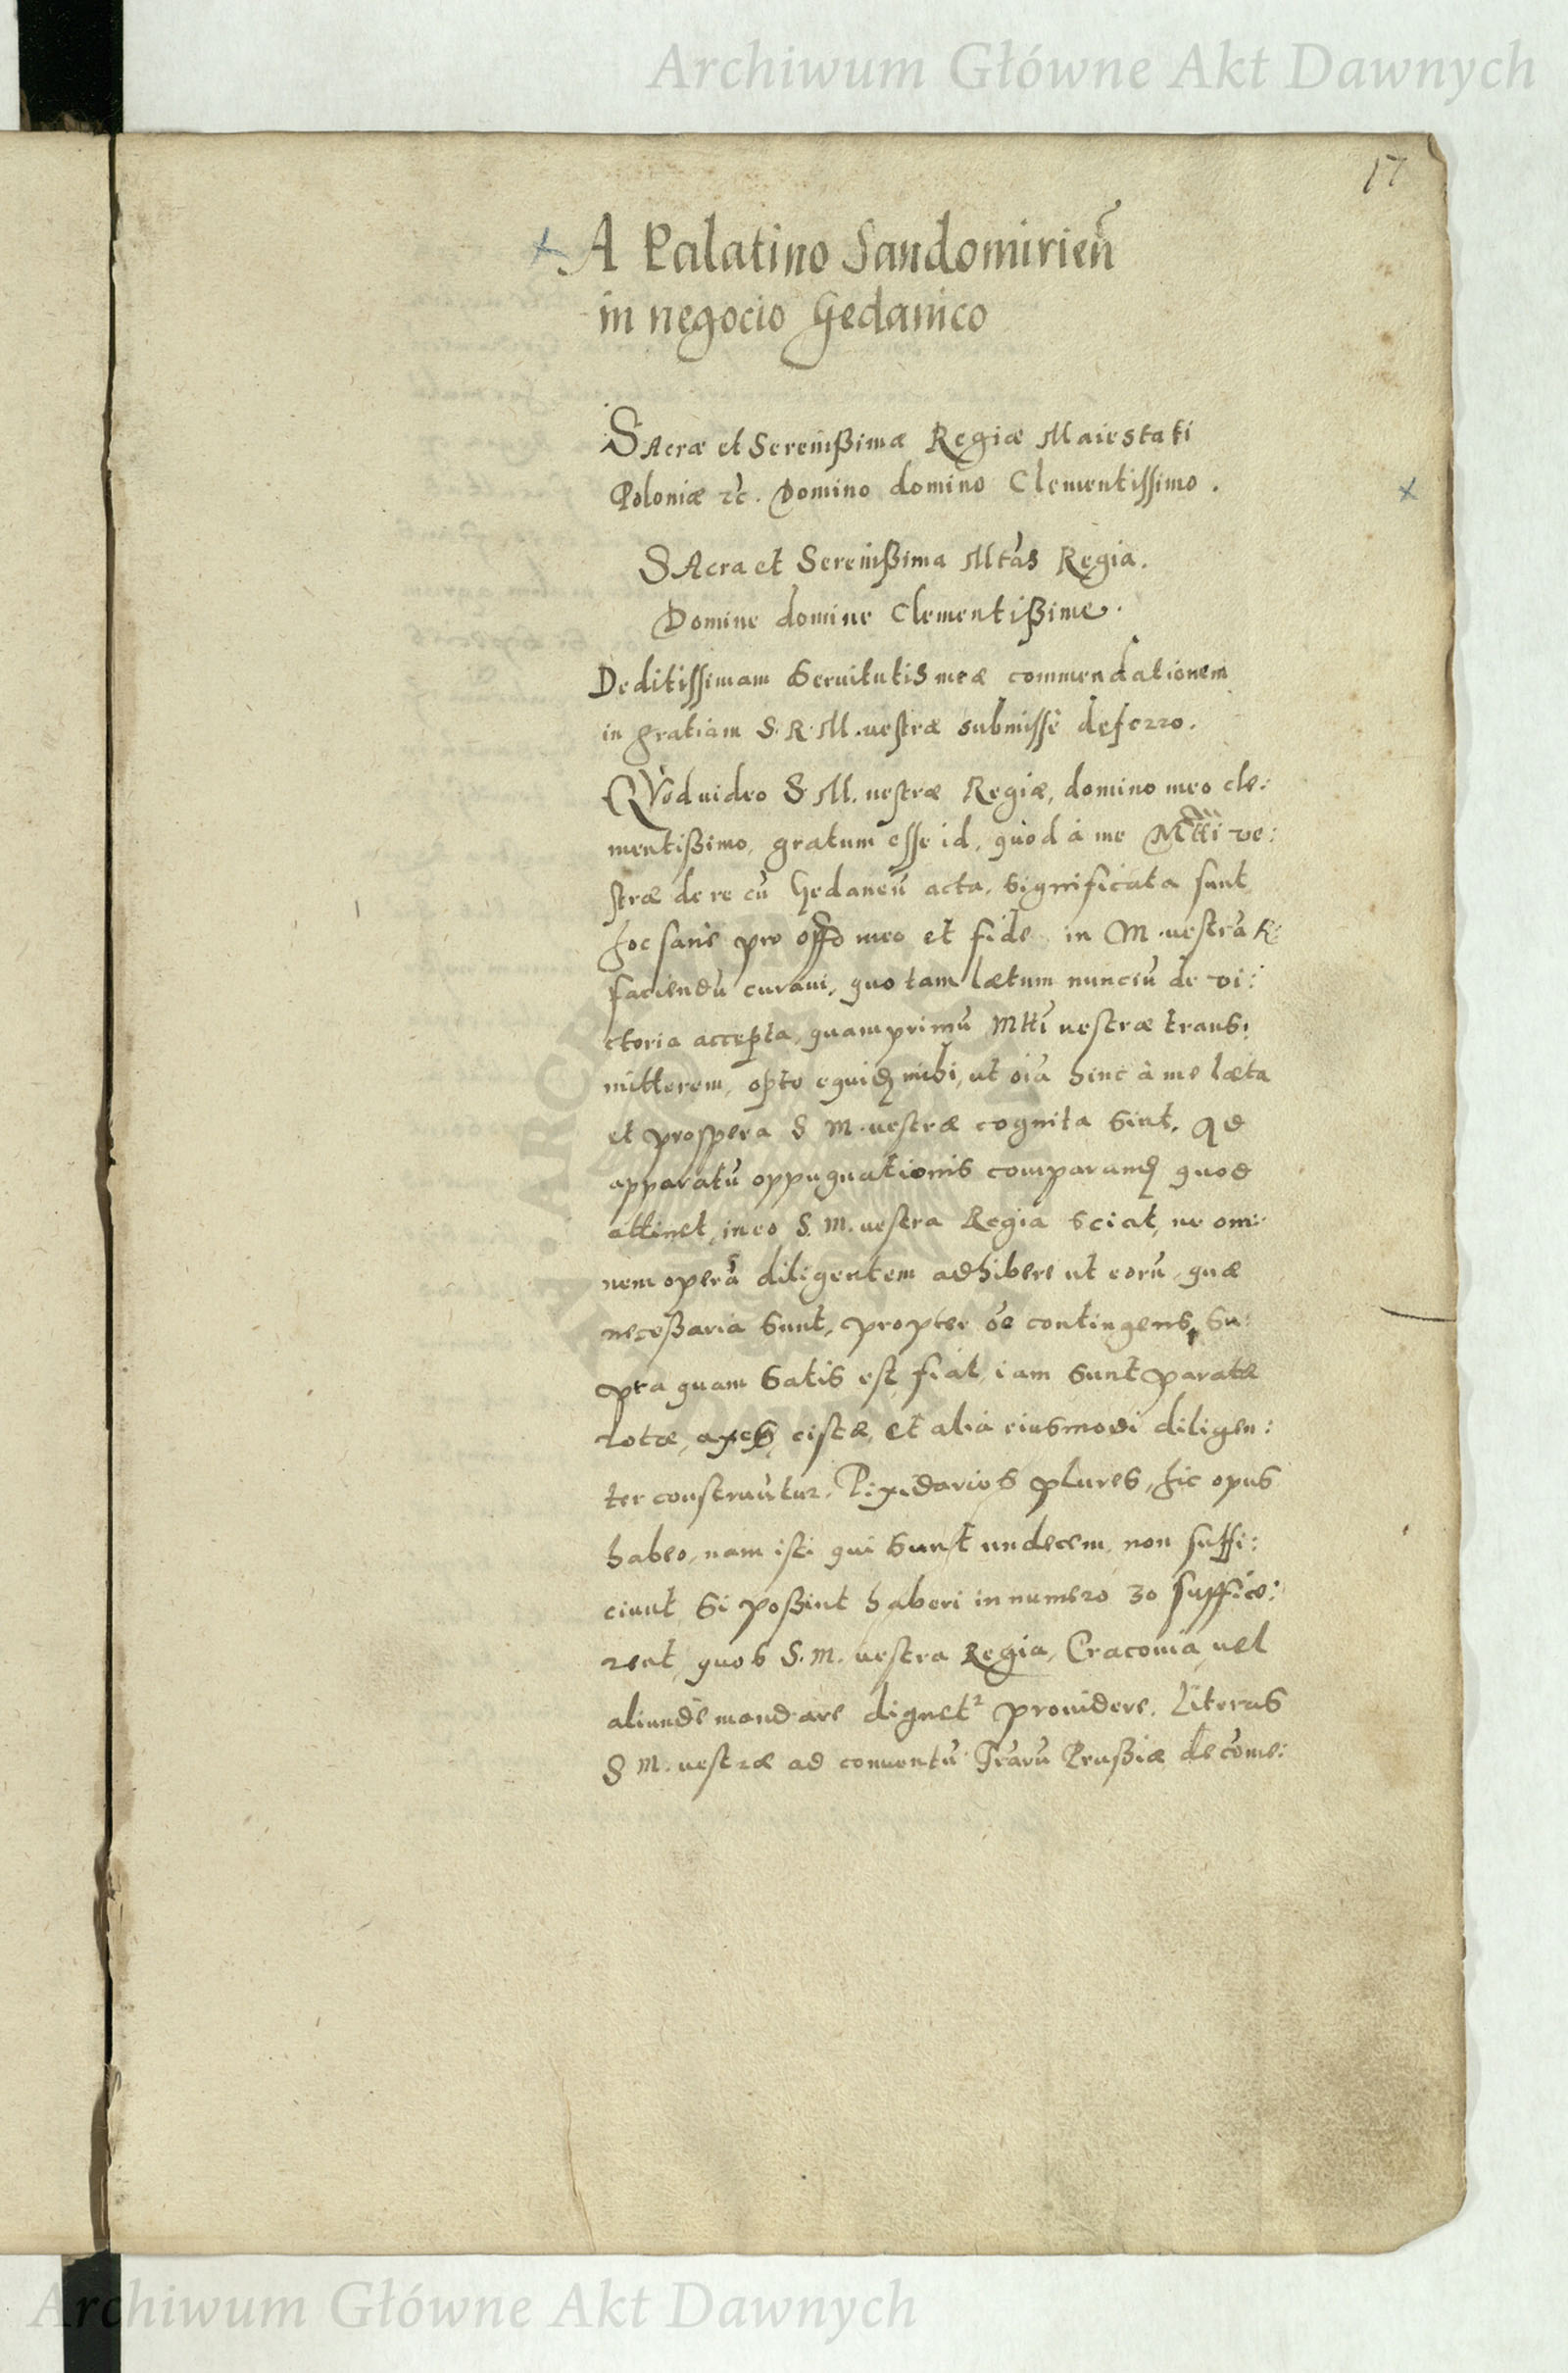 Archiwum Główne Akt Dawnych
17
A Palatino Sandomirień
in negocio Gedanico
SAcræ et Serenißimæ Regiæ Maiestati
Poloniæ ⁊c. Domino domino Clementissimo.
SAcra et Serenißima Mtás Regia.
Domine domine Clementißime.
Deditissimam Seruitutis meæ commendationem
in gratiam S. R. M. uestræ submisse deferro.
QVod uideo S. M. uestræ Regiæ, domino meo cle:
mentißimo, gratum esse id, quod à me Mtti ve:
stræ de re cū Gedaneń acta, significata sunt
Hoc sane pro offo meo et fide in M. uestra R.
faciendū curaui, quo tam lætum nunciū de vi:
ctoria accepta, quamprimū Mtti uestræ trans:
mitterem, opto equidꝫ mihi, ut oīa hinc à me læta
et prospera S. M. uestræ cognita sint. Qd
apparatū oppugnationis comparandꝫ quod
attinet, in eo S. M. uestra Regia sciat, ne om:
nem operā diligentem adhibere ut eorū, quæ
necessaria sunt, propter oē contingens, su:
pra quam satis est fiat, iam sunt paratæ
rotæ, axes, cistæ, et alia eiusmodi diligen:
ter construūtur. Pixidarios plures, hic opus
habeo, nam isti qui sunt undecem, non suffi:
ciunt, si poßint haberi in numero 30 suffice:
rent, quos S. M. uestra Regia, Cracouia, uel
aliunde mandare dignet² prouidere. Literas
S M. uestræ ad conuentū Trarū Prußiæ de come:
Archiwum Główne Akt Dawnych